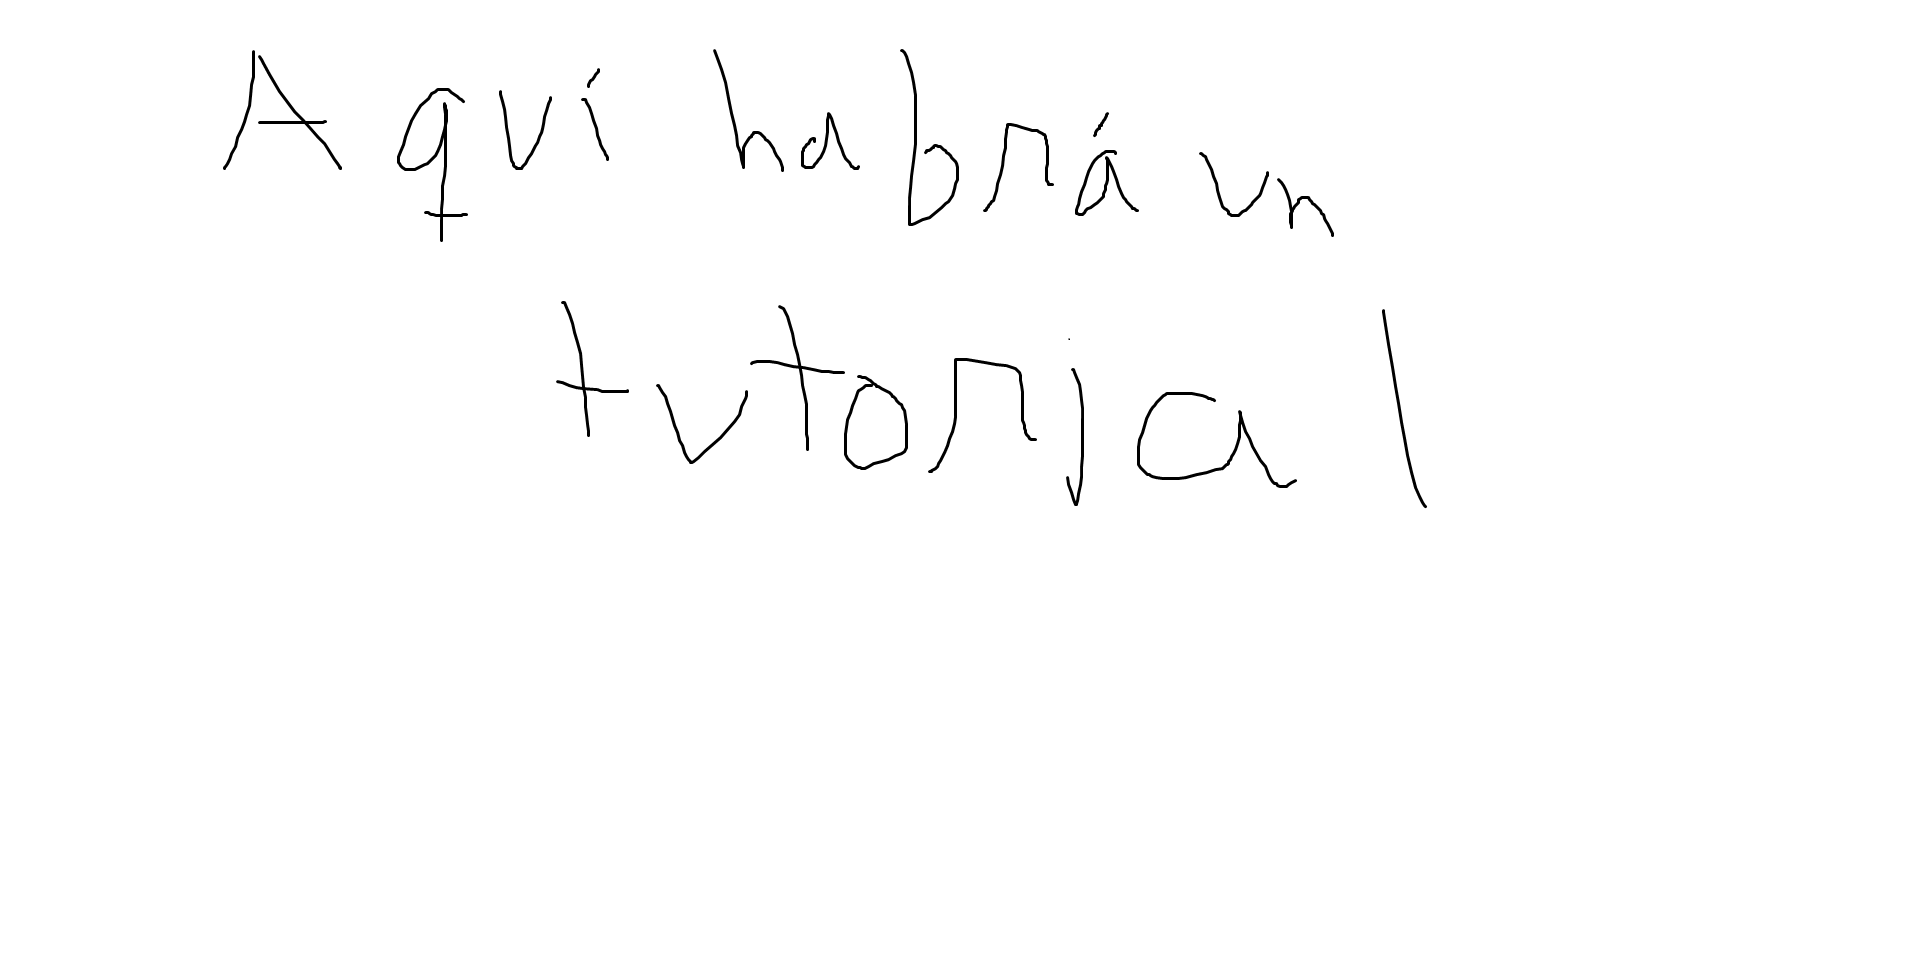 Aquí habrá un
tutorial